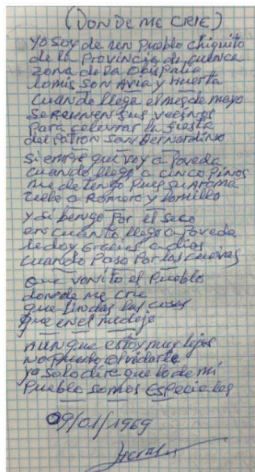 (DONDE ME CRIE)
Yo soy de un Pueblo chiquito
de la Provincia de Cuenca
zona de la
lomis son Avia y Huerta
Cuando llega el mes de mayo
Se reunen sus vecinos
Para celevrar la fiesta
del Patron San Bernardino
Siempre que voy a Poveda
cuando llego a cinco Pinos
me detengo Pues su Aroma
uele a Romero y tomillo
Y si bengo Por el Saco
en cuanto llego a Poveda
le doy Gracias a dios
Cuando Paso Por las cuevas
Que vonito el Pueblo
donde me crie
que lindas las cosas
que en el me deje
Aunque estoy muy lejos
No puedo olvidarte
ya solo dire que lo de mi
Pueblo somos especiales
09/01/1969